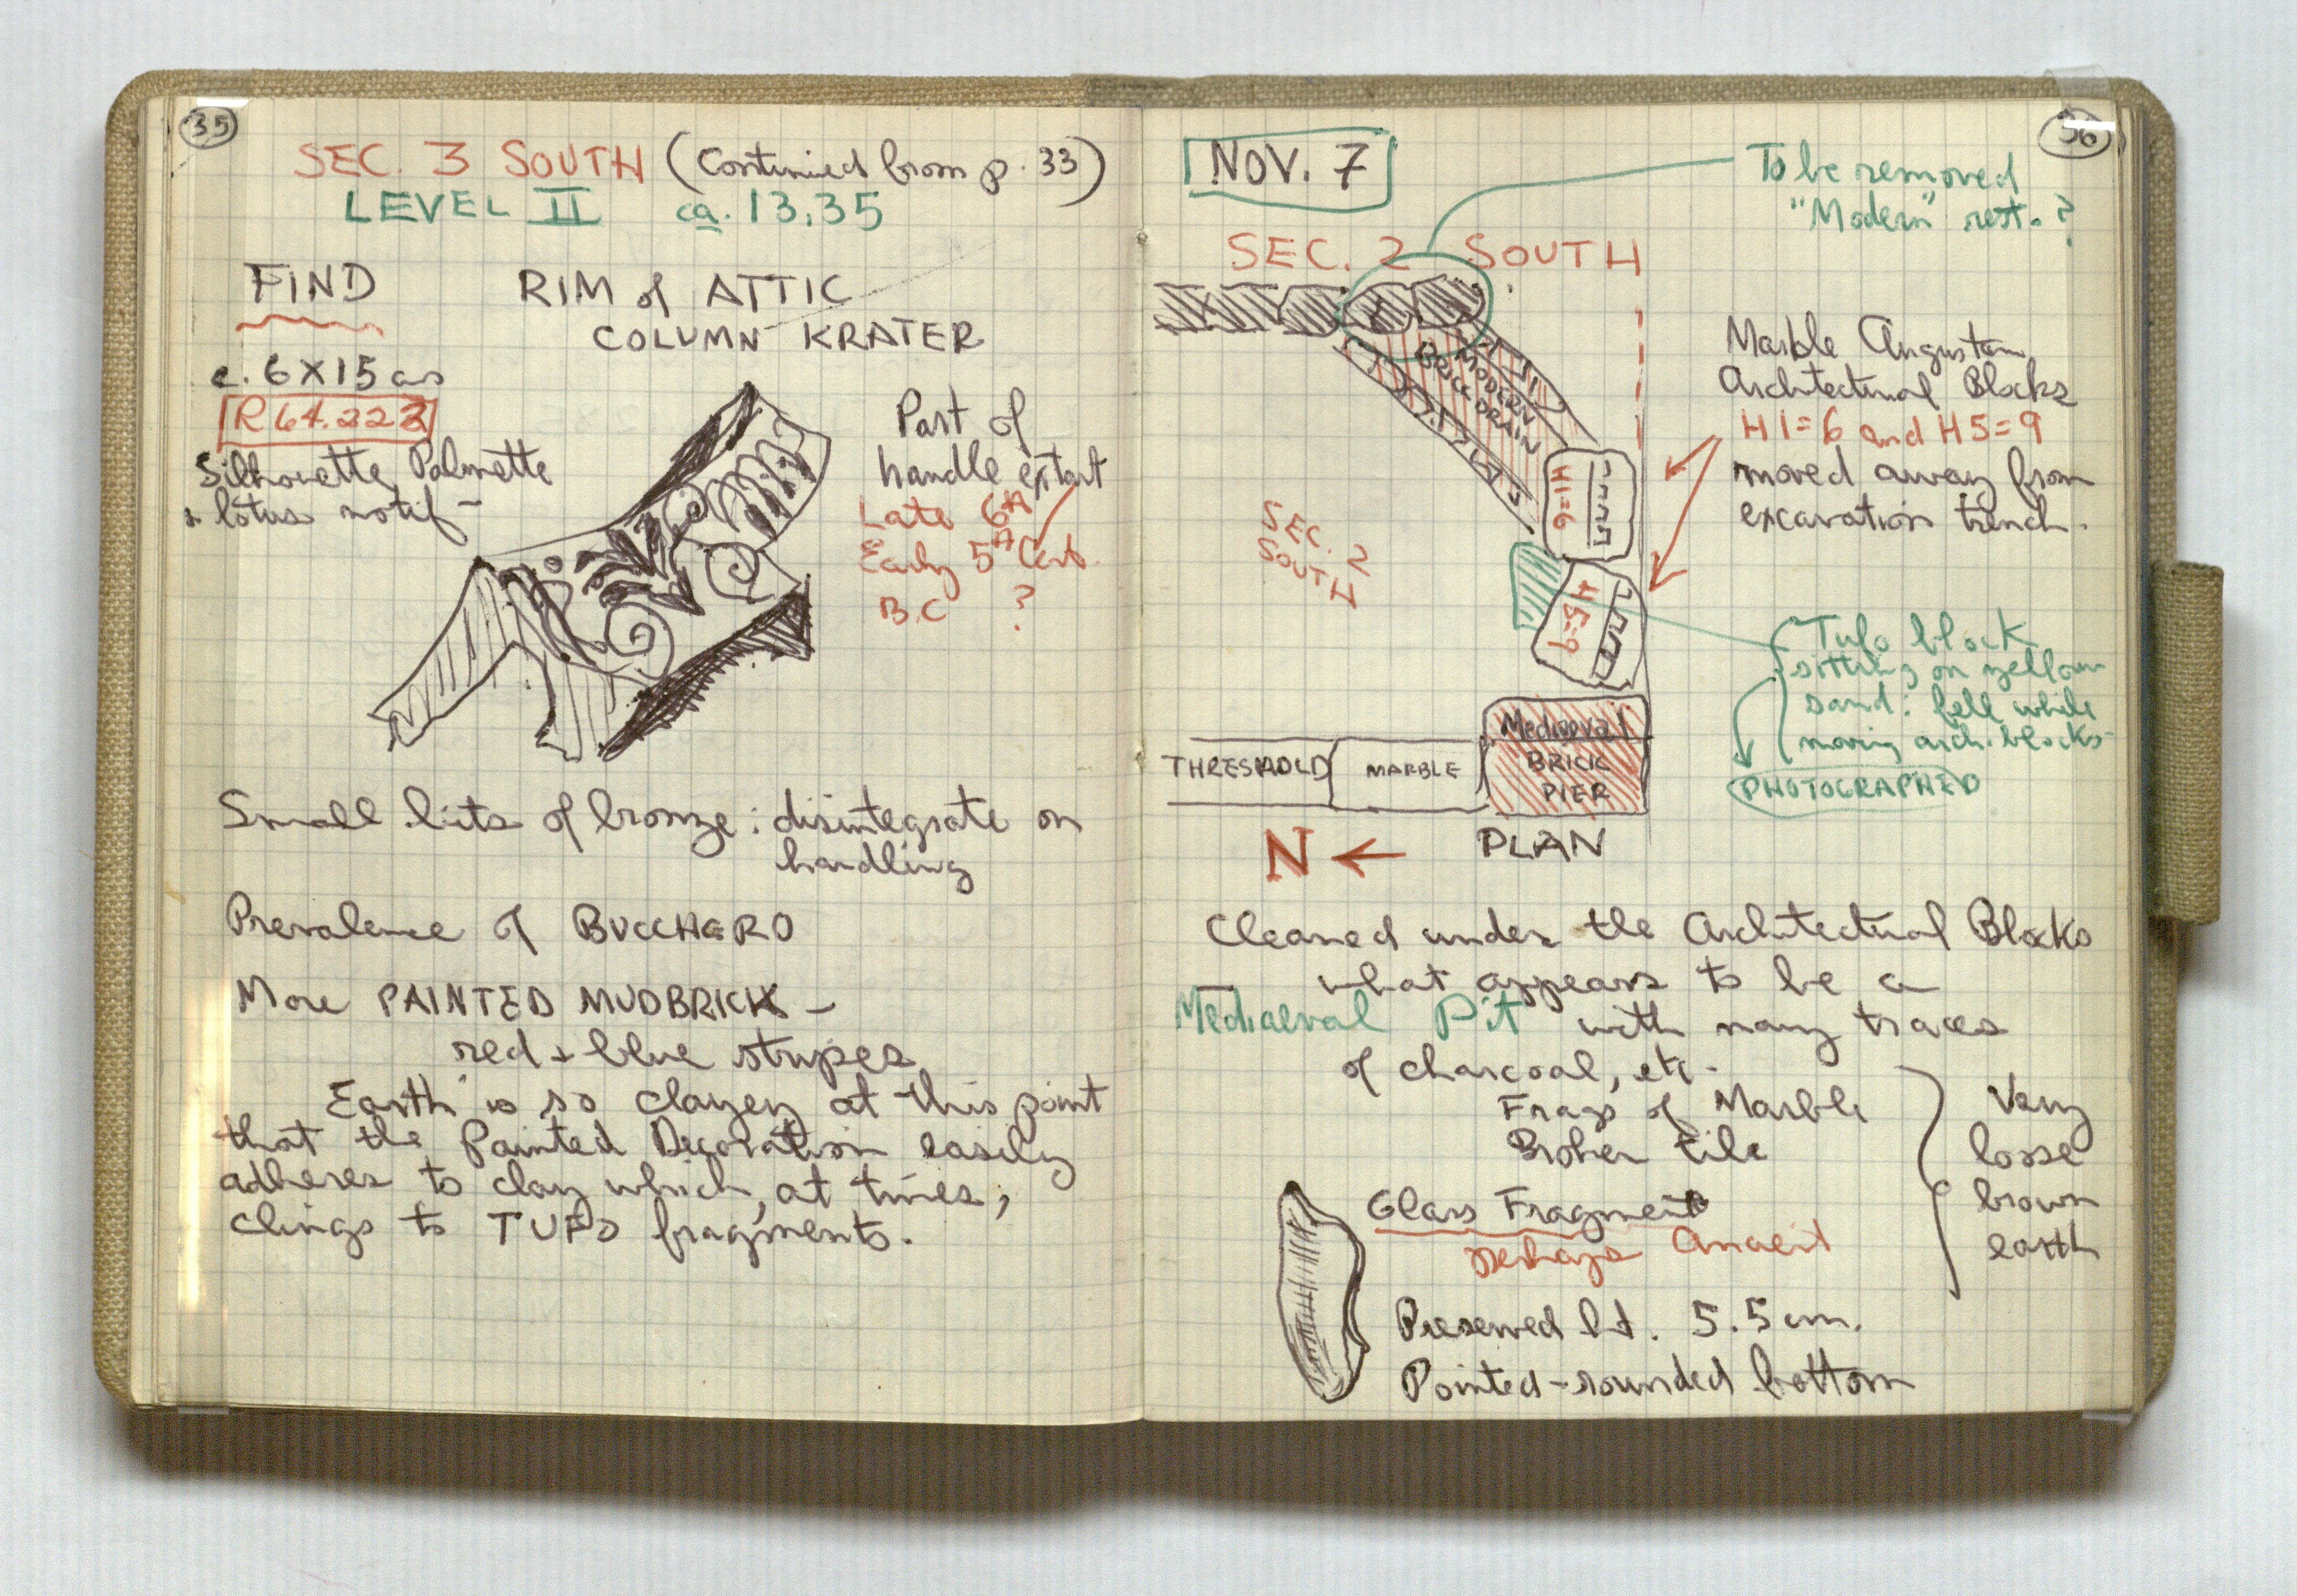 35
SEC. 3 SOUTH (Continued from p. 33)
LEVEL II ca. 13.35
FIND
RIM of ATTIC
COLUMN KRATER
c. 6 X 15 cm
R 64.222
Silhouette Palmette
+ lotus motif -
Part of
handle extant
Late 6th
Early 5th Cent.
B.C ?
Small bits of bronze: disintegrate on
handling
Prevalence of BUCCHERO
More PAINTED MUDBRICK -
red + blue stripes
Earth is so clayey at this point
that the Painted Decoration easily
adheres to clay which, at times,
clings to TUFO fragments.
36
NOV. 7
To be removed
"Modern" rest. ?
SEC. 2 SOUTH
MODERN
BRICK DRAIN
Marble Augustan
Architectural Blocks
H1=6 and H5=9
moved away from
excavation trench.
H1=6
SEC. 2
SOUTH
H5=9
Tufo block
sitting on yellow
sand: fell while
moving arch. blocks
PHOTOGRAPHED
THRESHOLD
MARBLE
Mediaeval
BRICK
PIER
N
PLAN
Cleaned under the Architectural Blocks
what appears to be a
Mediaeval Pit with many traces
of charcoal, etc.
Frags of Marble
Broken tile
Very
loose
brown
earth
Glass Fragment
perhaps Ancient
Preserved ht. 5.5 cm.
Pointed-rounded bottom